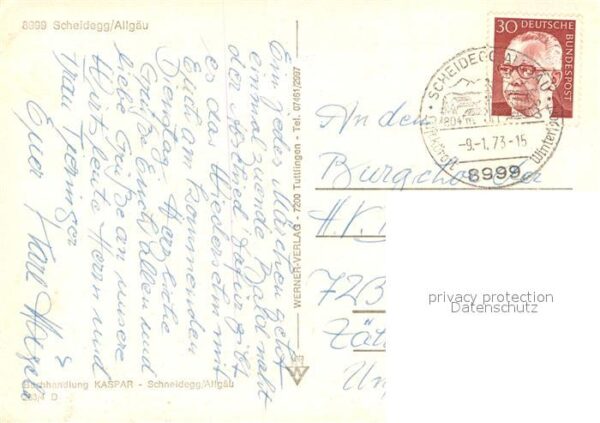 8999 Scheidegg/Allgäu
Ein jedes Märchen geht
einmal zuende. Bald naht
der Abschied, dafür gibt
es das Wiedersehn mit
Euch am kommenden
Dienstag. Herzliche
Grüße Euch allen und
liebe Grüße an unsere
Wirtsleute Herrn und
Frau
Euer Karl
Buchhandlung KASPAR - Schneidegg/Allgäu
D
WERNER-VERLAG - 7200 Tuttlingen - Tel. 07461/2997
30 DEUTSCHE BUNDESPOST
SCHEIDEGG
-9.-1.73-15
8999
An den
Burgchor der
72B
privacy protection
Datenschutz